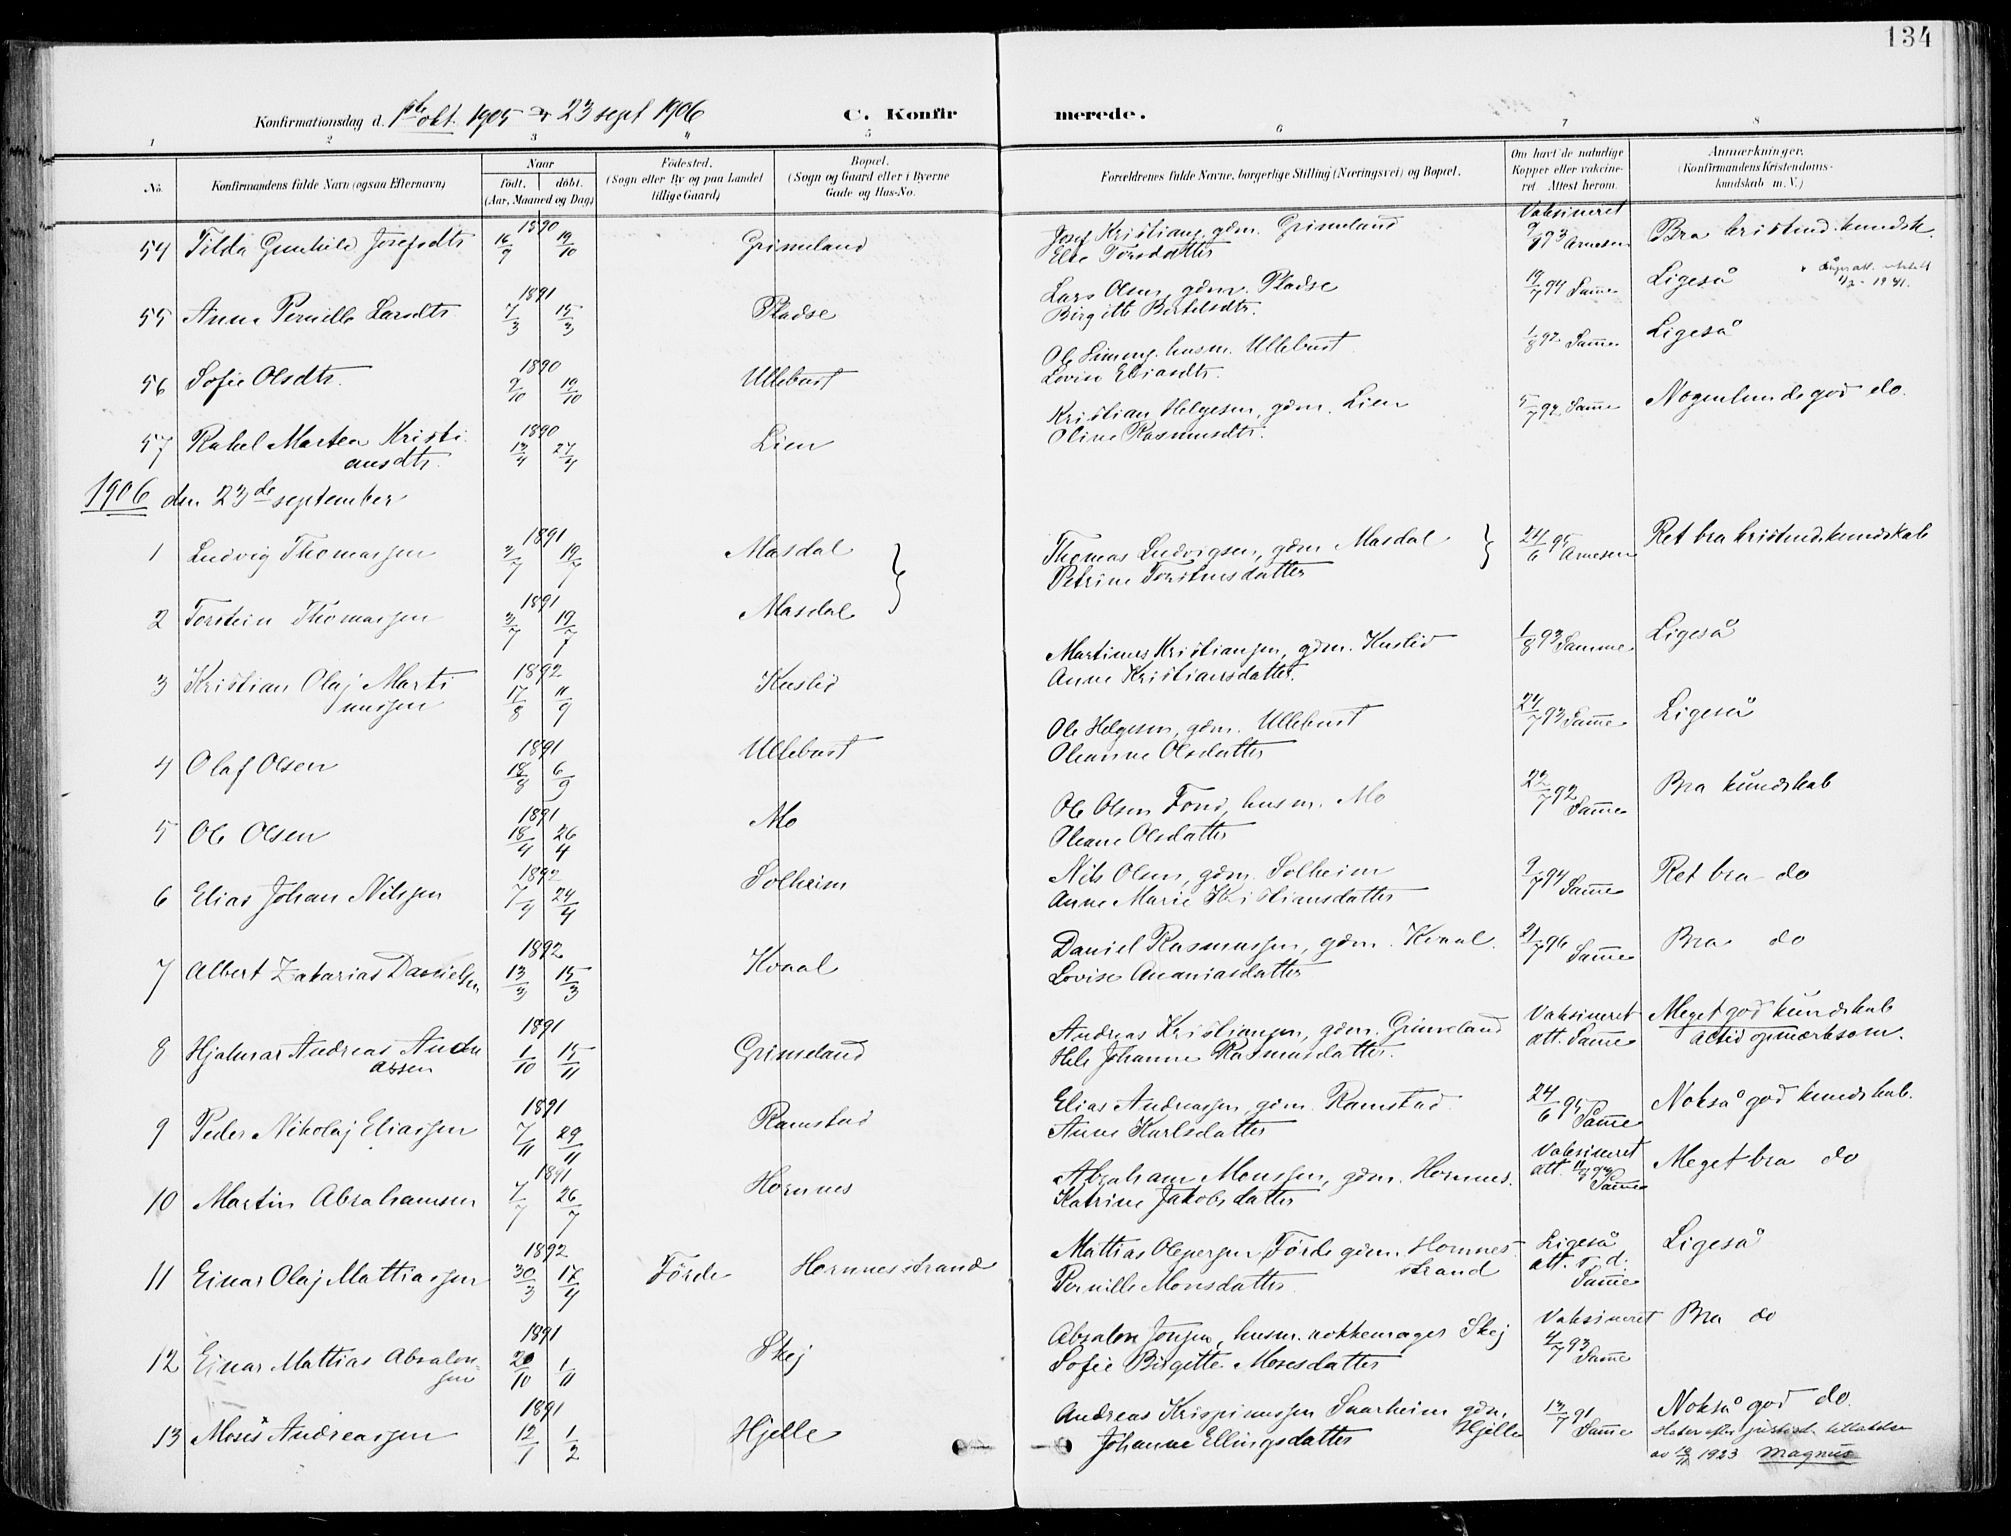 134
Konfirmationsdag d. 1ste okt. 1905 23 sept 1906 C. Konfirmerede.
1 2 3 4 5 6 7 8
No. Konfirmandens fulde Navn (ogsaa Efternavn) Naar født, døbt. (Aar, Maaned og Dag) Fødested. (Sogn eller By og paa Landet tillige Gaard) Bopæl. (Sogn og Gaard eller i Byerne Gade og Hus-No. Forældrenes fulde Navne, borgerlige Stilling (Næringsvei) og Bopæl. Om havt de naturlige Kopper eller vakcineret. Attest herom. Anmærkninger. (Konfirmandens Kristendomskundskab m. V.)
54 Tilda Gunhild Josefsdtr 1890 16/9 19/10 Grimeland Josef Kristians. gdm. Grimeland Vaksineret 9/8 93 Arnesen Bra kristend.kundsk.
Else Torsdatter
55 Anne Pernille Larsdtr 1891 7/3 15/3 Pladse Lars Olsen, gdm. Pladse 19/7 94 Samme Ligeså 1941.
Birgitte Bertelsdtr.
56 Sofie Olsdtr. 1890 2/10 19/10 Ullebust Ole Simons. husm. Ullebust 1/8 92 Samme Ligeså
Lovise Eliasdtr.
57 Rakel Martea Kristiansdtr. 1890 13/4 27/4 Lien Kristian Helgesen, gdm. Lien 5/7 92 Samme Nogenlunde god do.
Oline Rasmusdtr.
1906 den 23de september
1 Ludvig Thomassen 1891 3/7 19/7 Masdal Thomas Ludvigsen, gdm Masdal 24/6 95 Arnesen Ret bra kristendskundskab
Petrine Torstensdatter
2 Torstein Thomassen 1891 3/7 19/7 Masdal
3 Kristian Olaj Martinussen 1892 17/8 11/9 Kuslid Martinus Kristiansen, gdm. Kuslid 1/8 93 Samme Ligeså
Anne Kristiansdatter.
4 Olaf Olsen 1891 18/8 6/9 Ullebust Ole Helgesen, gdm. Ullebust 24/7 93 Samme Ligeså
Oleanne Olsdatter
5 Ole Olsen 1891 18/4 26/4 Mo Ole Olsen Fond, husm. Mo 22/7 92 Samme Bra kundskab
Oleane Olsdatter
6 Elias Johan Nilssen 1892 7/4 24/4 Solheim Nils Olsen, gdm. Solheim 9/7 94 Samme Ret bra do
Anne Marie Kristiansdatter
7 Albert Zakarias Danielsen 1892 13/3 15/3 Kvaal Daniel Rasmussen, gdm. Kvaal. 21/7 96 Samme Bra do
Lovise Ananiasdatter
8 Hjalmar Andreas Andreassen 1891 1/10 15/11 Grimeland Andreas Kristiansen, gdm. Grimeland Vaksineret att. Samme Meget god kundskab
Johanne Rasmusdatter. altid opmærksom.
9 Peder Nikolaj Eliassen 1891 7/11 29/11 Ramstad Elias Andreassen, gdm. Ramstad 24/6 95 Samme Nokså god kundskab.
Anne Karlsdatter
10 Martin Abrahamsen 1891 7/7 26/7 Hornnes Abraham Monssen, gdm. Hornnes. Vaksineret att. Samme Meget bra do
Katrine Jakobsdatter
11 Einar Olaj Mattiassen 1892 30/3 17/4 Førde Hornnesstrand Mattias Olepersen Førde gdm. Hornnesstrand Ligeså att. Samme Ligeså
Pernille Monsdatter
12 Einar Mattias Absalonsen 1891 20/10 1/11 Skej Absalon Jonsen, husm. rokkemager Skej Vaksineret 4/7 93 Samme Bra do
Sofie Birgitte Mosesdatter
13 Moses Andreassen 1891 12/1 1/2 Hjelle Andreas Krispinussen Saarheim gdm. Hjelle 13/7 91 Samme Nokså god do.
Johanne Ellingsdatter Heter efter tillatelse
av 1923 Magnus